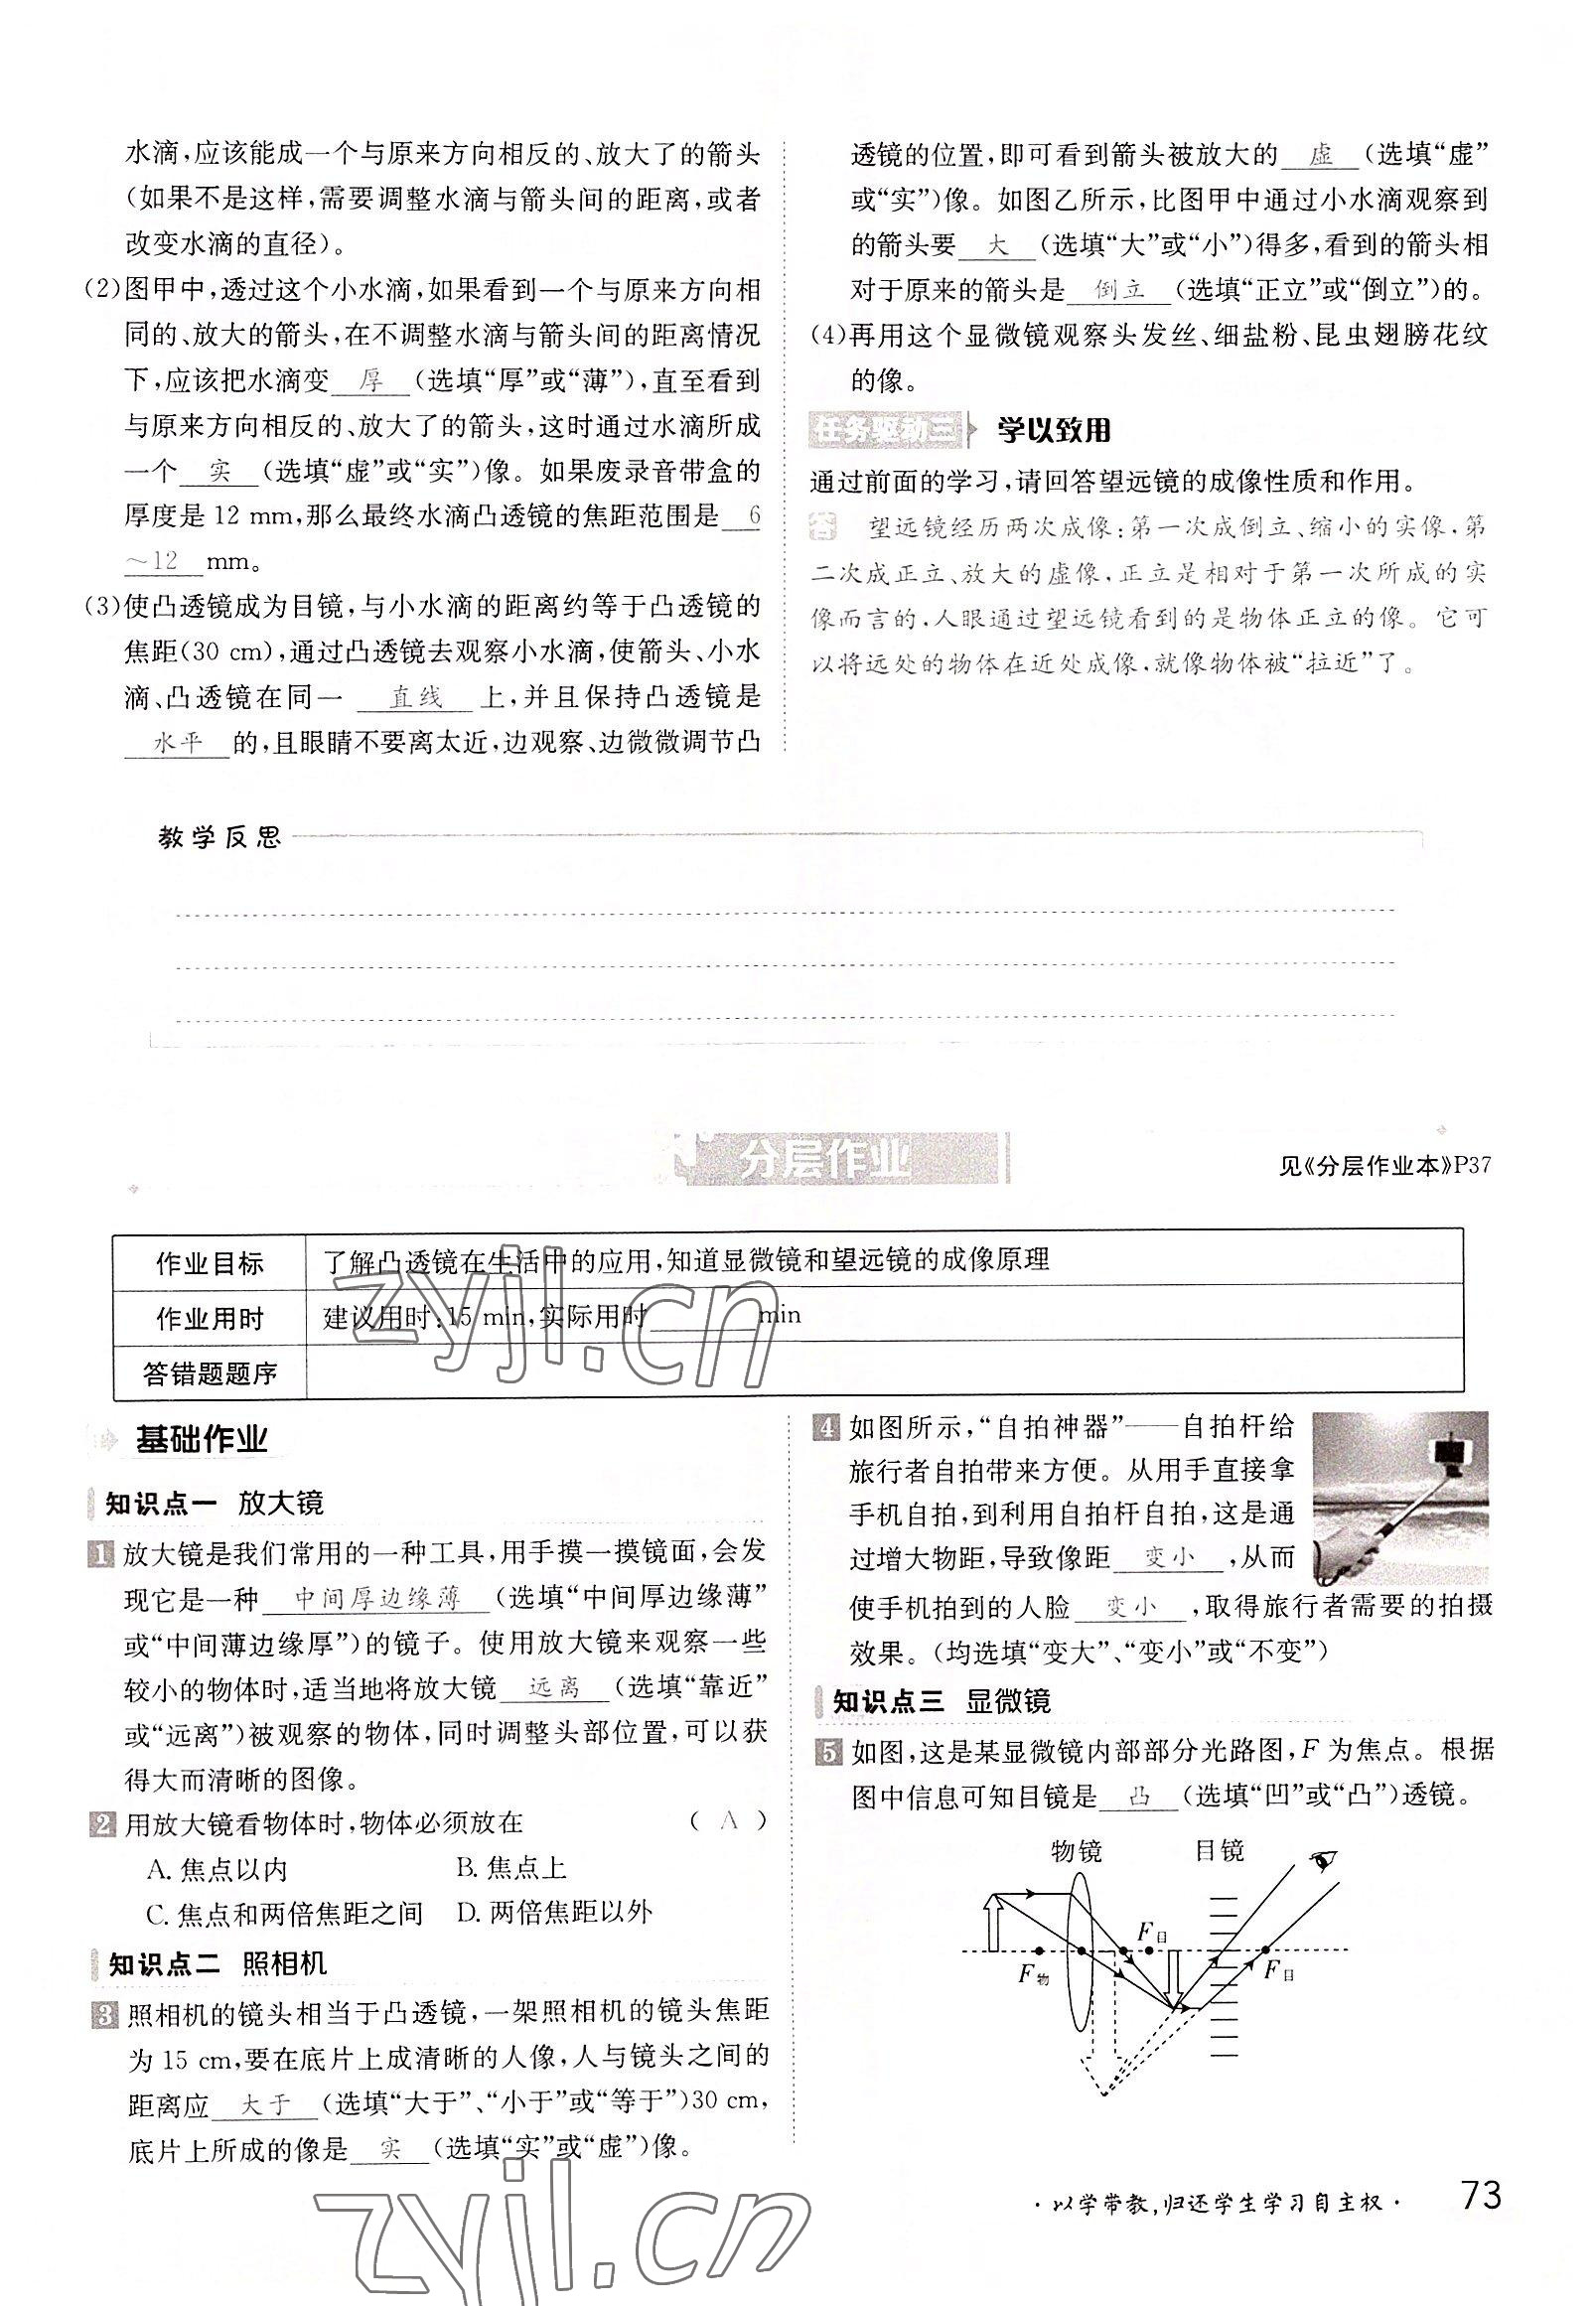 水滴,应该能成一个与原来方向相反的、放大了的箭头
(如果不是这样,需要调整水滴与箭头间的距离,或者
改变水滴的直径)。
(2)图甲中,透过这个小水滴,如果看到一个与原来方向相
同的、放大的箭头,在不调整水滴与箭头间的距离情况
下,应该把水滴变 厚 (选填“厚”或“薄”),直至看到
与原来方向相反的、放大了的箭头,这时通过水滴所成
一个 实 (选填“虚”或“实”)像。如果废录音带盒的
厚度是 12 mm,那么最终水滴凸透镜的焦距范围是 6
~12 mm。
(3)使凸透镜成为目镜,与小水滴的距离约等于凸透镜的
焦距(30 cm),通过凸透镜去观察小水滴,使箭头、小水
滴、凸透镜在同一 直线 上,并且保持凸透镜是
水平 的,且眼睛不要离太近,边观察、边微微调节凸
透镜的位置,即可看到箭头被放大的 虚 (选填“虚”
或“实”)像。如图乙所示,比图甲中通过小水滴观察到
的箭头要 大 (选填“大”或“小”)得多,看到的箭头相
对于原来的箭头是 倒立 (选填“正立”或“倒立”)的。
(4)再用这个显微镜观察头发丝、细盐粉、昆虫翅膀花纹
的像。
任务驱动三 学以致用
通过前面的学习,请回答望远镜的成像性质和作用。
答 望远镜经历两次成像:第一次成倒立、缩小的实像,第
二次成正立、放大的虚像,正立是相对于第一次所成的实
像而言的,人眼通过望远镜看到的是物体正立的像。它可
以将远处的物体在近处成像,就像物体被“拉近”了。
教学反思
分层作业
见《分层作业本》P37
作业目标 了解凸透镜在生活中的应用,知道显微镜和望远镜的成像原理
作业用时 建议用时:15 min,实际用时 min
答错题题序
zyjl.cn
基础作业
知识点一 放大镜
1 放大镜是我们常用的一种工具,用手摸一摸镜面,会发
现它是一种 中间厚边缘薄 (选填“中间厚边缘薄”
或“中间薄边缘厚”)的镜子。使用放大镜来观察一些
较小的物体时,适当地将放大镜 远离 (选填“靠近”
或“远离”)被观察的物体,同时调整头部位置,可以获
得大而清晰的图像。
2 用放大镜看物体时,物体必须放在 ( A )
A. 焦点以内 B. 焦点上
C. 焦点和两倍焦距之间 D. 两倍焦距以外
知识点二 照相机
3 照相机的镜头相当于凸透镜,一架照相机的镜头焦距
为 15 cm,要在底片上成清晰的人像,人与镜头之间的
距离应 大于 (选填“大于”、“小于”或“等于”)30 cm,
底片上所成的像是 实 (选填“实”或“虚”)像。
4 如图所示,“自拍神器”——自拍杆给
旅行者自拍带来方便。从用手直接拿
手机自拍,到利用自拍杆自拍,这是通
过增大物距,导致像距 变小 ,从而
使手机拍到的人脸 变小 ,取得旅行者需要的拍摄
效果。(均选填“变大”、“变小”或“不变”)
知识点三 显微镜
5 如图,这是某显微镜内部部分光路图,F 为焦点。根据
图中信息可知目镜是 凸 (选填“凹”或“凸”)透镜。
物镜 目镜
F目
F物 F目
zyjl.cn
·以学带教,归还学生学习自主权· 73